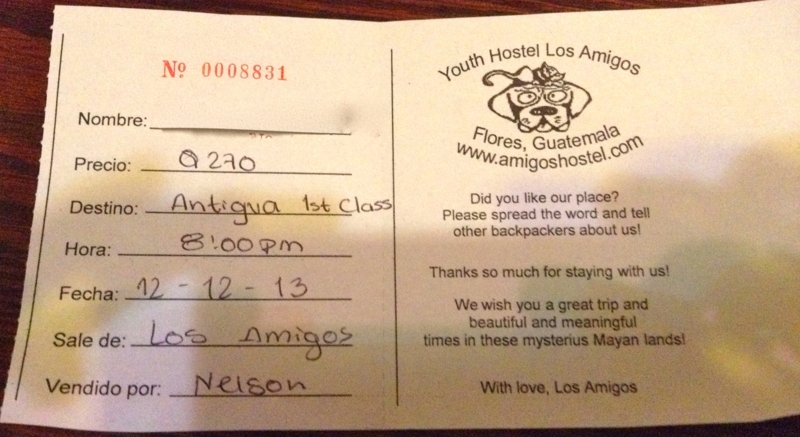 Nº 0008831
Nombre:
Precio: Q270
Destino: Antigua 1st Class
Hora: 8:00pm
Fecha: 12-12-13
Sale de: Los Amigos
Vendido por: Nelson
Youth Hostel Los Amigos
Flores, Guatemala
www.amigoshostel.com
Did you like our place?
Please spread the word and tell
other backpackers about us!
Thanks so much for staying with us!
We wish you a great trip and
beautiful and meaningful
times in these mysterius Mayan lands!
With love, Los Amigos